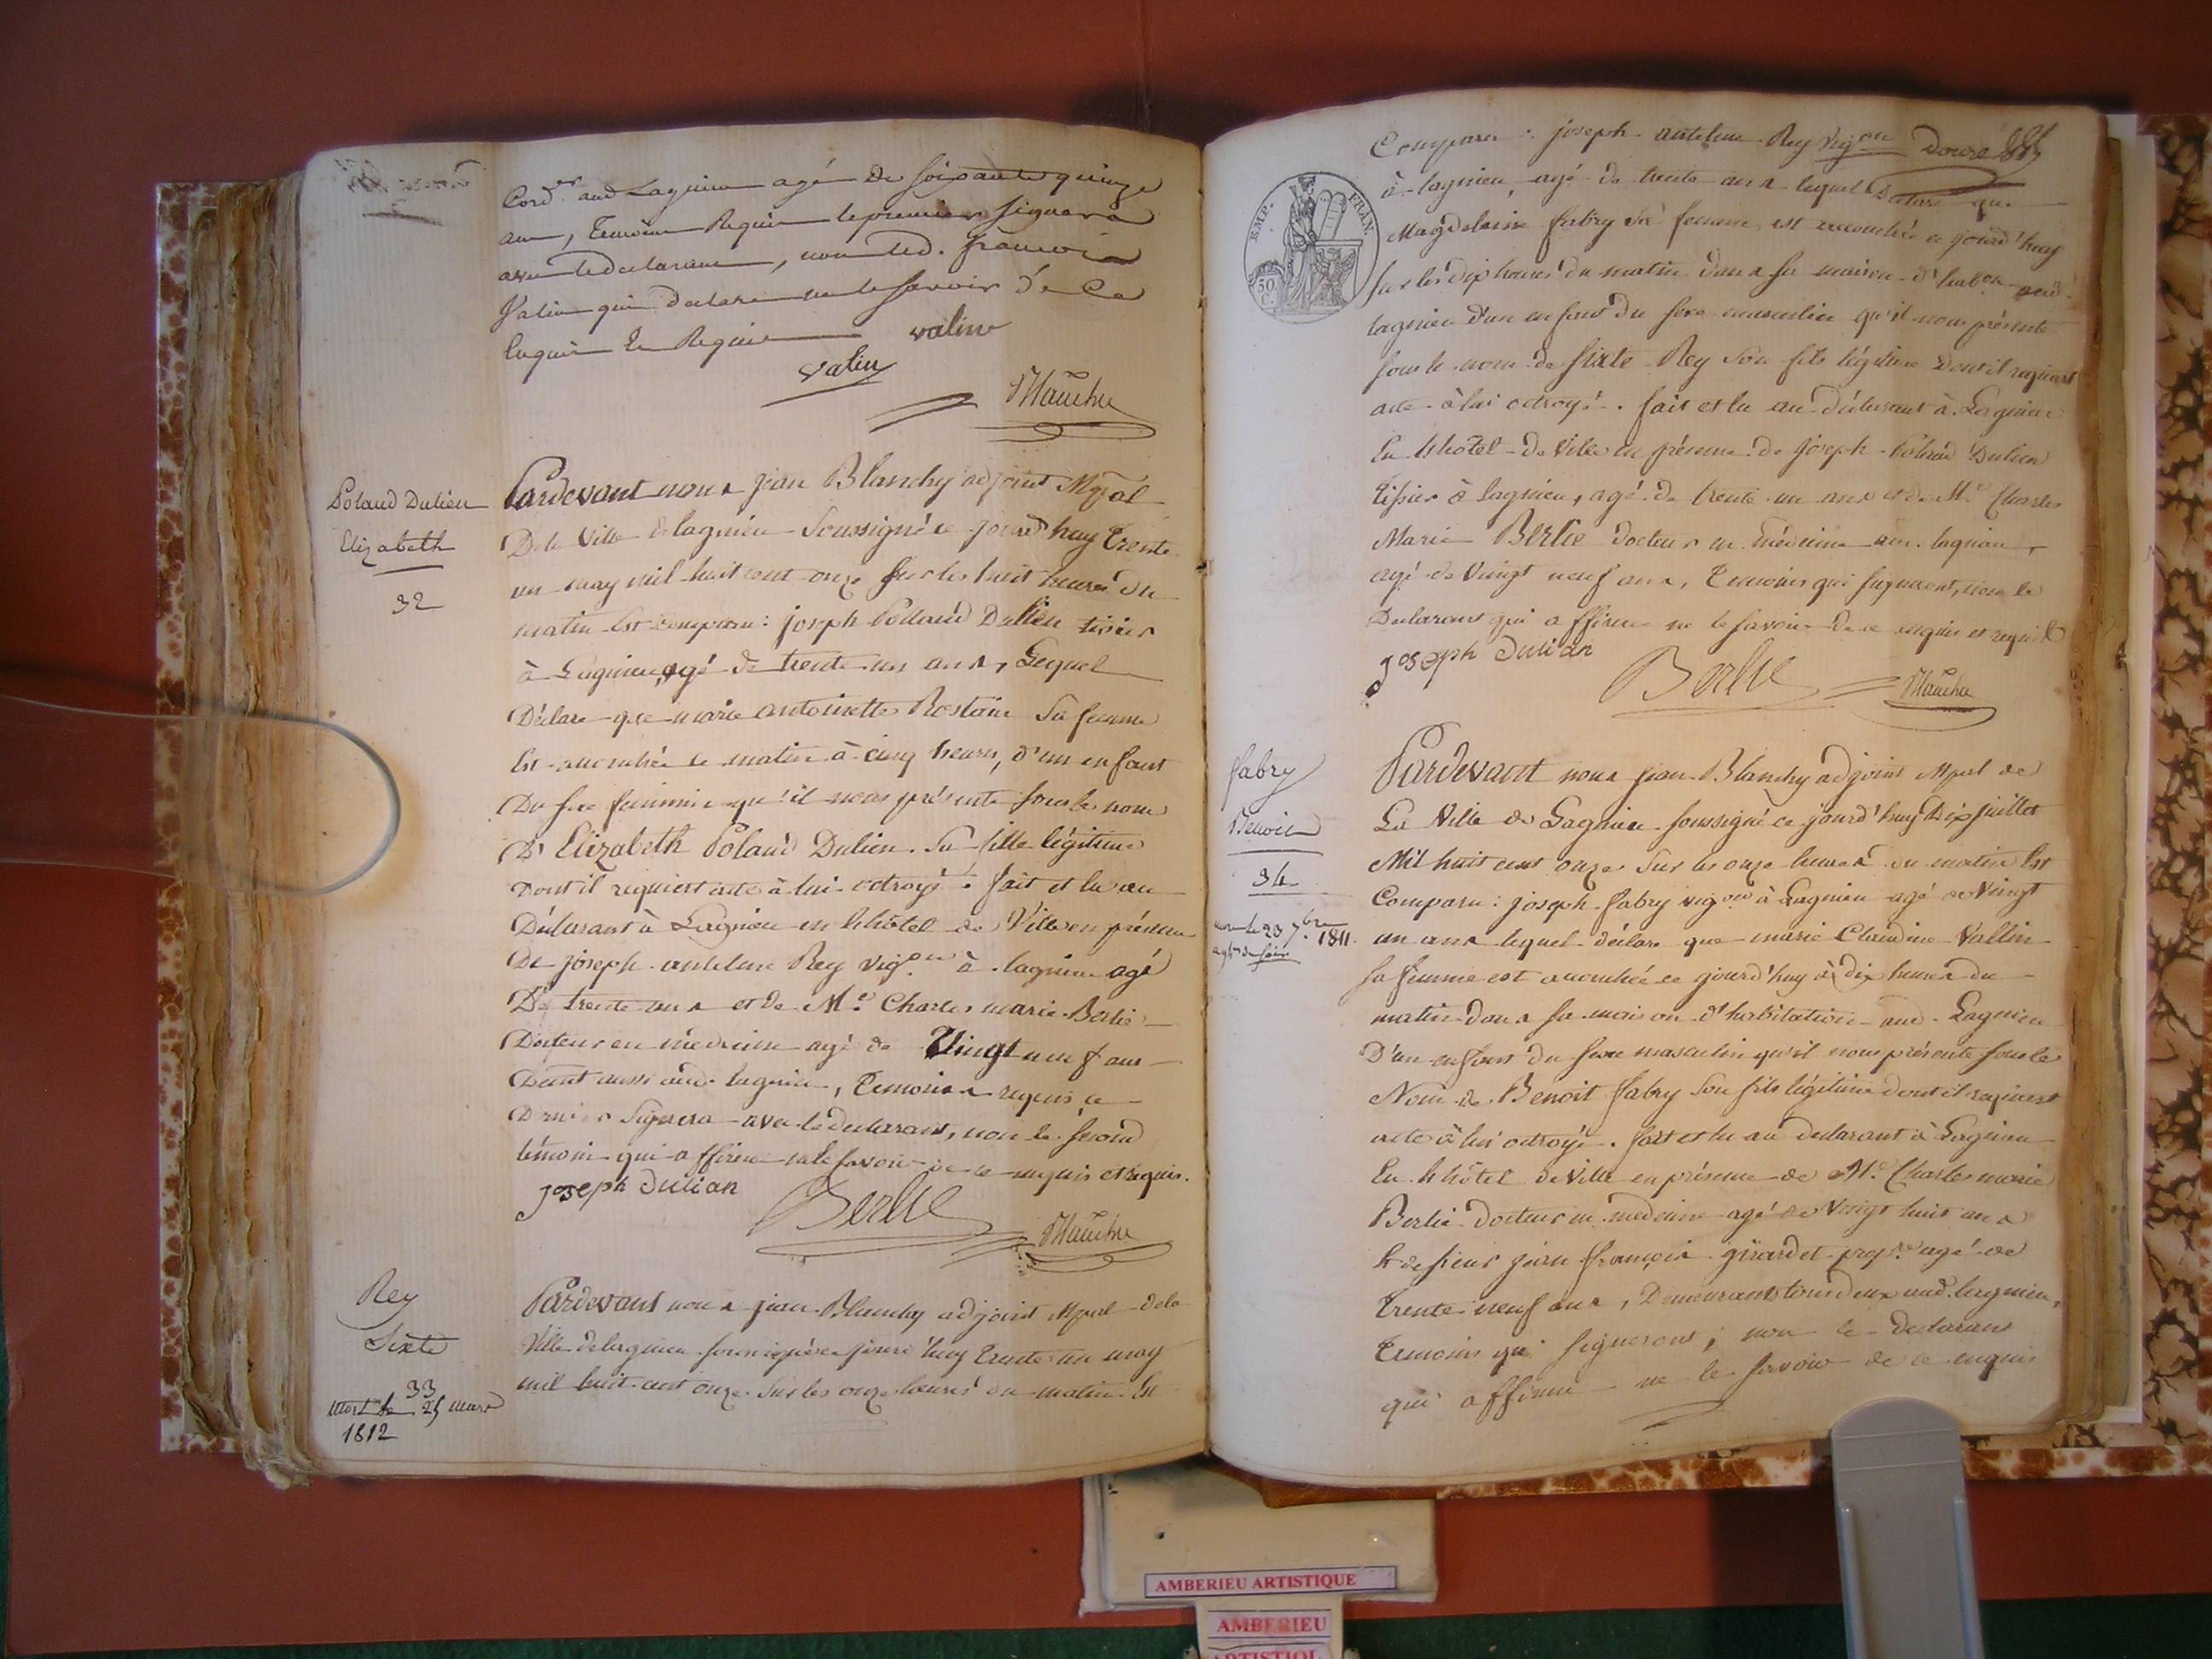 Cord.er aud Lagnieu agé de soixante quinze
ans, Temoins Requis le premier signera
avec le declarant, non led. françois
Valin qui declare ne le savoir de ce
Enquis Et Requis
valin
valin
Blanchy
Polaud Dulien
Elizabeth
32
Pardevant nous jean Blanchy adjoint Mpal
De la Ville de lagnieu Soussigné ce jourd'huy trente
un may mil huit cent onze sur les huit heures du
matin Est comparu : joseph Polaud Dulien tisier
à Lagnieu, agé de trente un ans, Lequel
Déclare que marie antoinette Rostain sa femme
Est accouchée ce matin à cinq heures, d'un enfant
Du sexe feminin qu'il nous présente sous le nom
D'Elizabeth Polaud Dulien. Sa fille légitime
Dont il requiert acte à lui octroyé. fait et lu au
Déclarant à Lagnieu en lhôtel de Ville en présence
De joseph antelme Rey vig.on à lagnieu agé
De trente ans et de M.e Charles marie Berlie
Docteur en médecine agé de Vingt neuf ans
Deint aussi aud. lagnieu, temoins requis, ce
Dernier Signera avec le declarant, non le second
témoin qui affirme ne le savoir de ce enquis et requis.
joseph dulian
Berlie
Blanchy
Rey
Sixte
33
mort le 25 mars
1812
Pardevant nous jean Blanchy adjoint Mpal de la
Ville de lagnieu soussigné ce jourd'huy trente un may
mil huit cent onze sur les onze heures du matin Est
Comparu : joseph antelme Rey vig.on douze
à lagnieu, agé de trente ans lequel declare que
Magdelaine fabry sa femme est accouchée ce jourd'huy
sur les dix heures du matin dans sa maison d'hab.on aud.
lagnieu d'un enfant du sexe masculin qu'il nous présente
sous le nom de Sixte Rey Son fils légitime Dont il requiert
acte à lui octroyé. fait et lu au déclarant à Lagnieu
En lhôtel de Ville en présence de joseph Polaud Dulien
tisier à lagnieu, agé de trente un ans et de M.e Charles
Marie Berlie docteur en médecine aud. lagnieu,
agé de Vingt neuf ans, temoins qui signeront, non le
Declarant qui affirme ne le savoir de ce enquis et requis
joseph dulian
Berlie
Blanchy
EMP. FRAN.
50 C.
fabry
Benoit
34
mort le 23 7.bre 1811.
Pardevant nous jean Blanchy adjoint Mpal de
La Ville de Lagnieu soussigné ce jourd'huy Dix juillet
Mil huit cent onze sur les onze heures du matin Est
Comparu : joseph fabry vig.on à Lagnieu agé de Vingt
un ans lequel déclare que marie Claudine Vallin
sa femme est accouchée ce jourd'huy à dix heures du
matin dans sa maison d'habitation aud. Lagnieu
D'un enfant du sexe masculin qu'il nous présente sous le
Nom de Benoit fabry Son fils légitime dont il requiert
acte à lui octroyé. fait et lu au declarant à Lagnieu
En lhôtel de Ville en présence de M.e Charles marie
Berlie docteur en medecine agé de Vingt huit ans
Et de sieur jean françois girardet prop.re agé de
trente neuf ans, Demeurants tous deux aud. lagnieu,
temoins qui signeront, non le declarant
qui affirme ne le savoir de ce enquis
AMBERIEU ARTISTIQUE
AMBERIEU